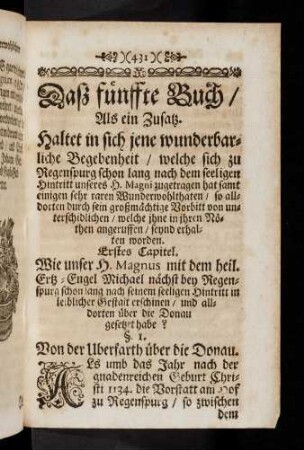 (431)
Daß fünffte Buch /
Als ein Zusatz.
Haltet in sich jene wunderbar-
liche Begebenheit / welche sich zu
Regenspurg schon lang nach dem seeligen
Hintritt unseres H. Magni zugetragen hat samt
einigen sehr raren Wunderwohlthaten / so all-
dorten durch sein großmächtige Vorbitt von un-
terschidlichen / welche jhne in jhren Nö-
then angeruffen / seynd erhal-
ten worden.
Erstes Capitel.
Wie unser H. Magnus mit dem heil.
Ertz-Engel Michael nächst bey Regen-
spurg schon lang nach seinem seeligen Hintritt in
leiblicher Gestalt erschinen / und all-
dorten über die Donau
gesetzt habe?
§. 1.
Von der Uberfarth über die Donau.
ALs umb das Jahr nach der
gnadenreichen Geburt Chri-
sti 1134. die Vorstatt am Hof
zu Regenspurg / so zwischen
dem